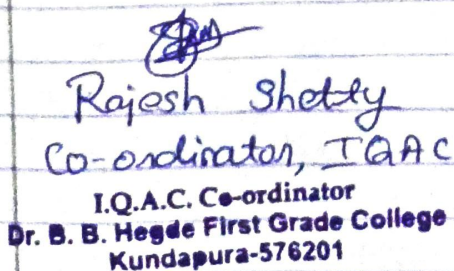 Rajesh Shetty
Co-ordinator, IQAC
I.Q.A.C. Co-ordinator
Dr. B. B. Hegde First Grade College
Kundapura-576201